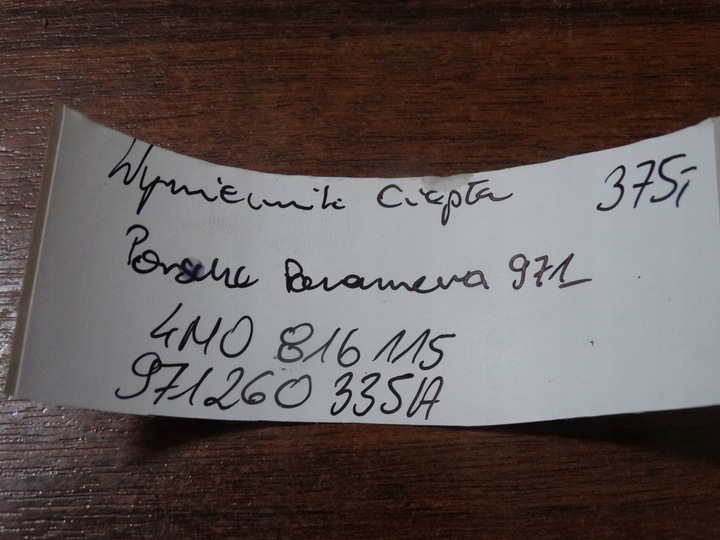 Wymiennik Ciepła 375,-
Porsche Panamera 971
4M0 816 115
971260 335A